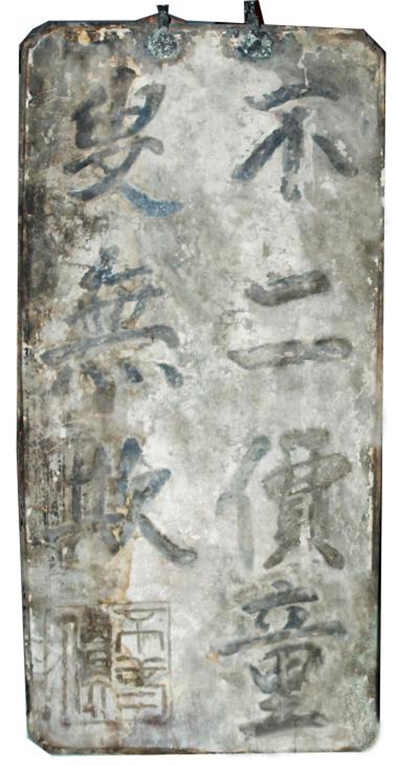 不二價童
叟無欺